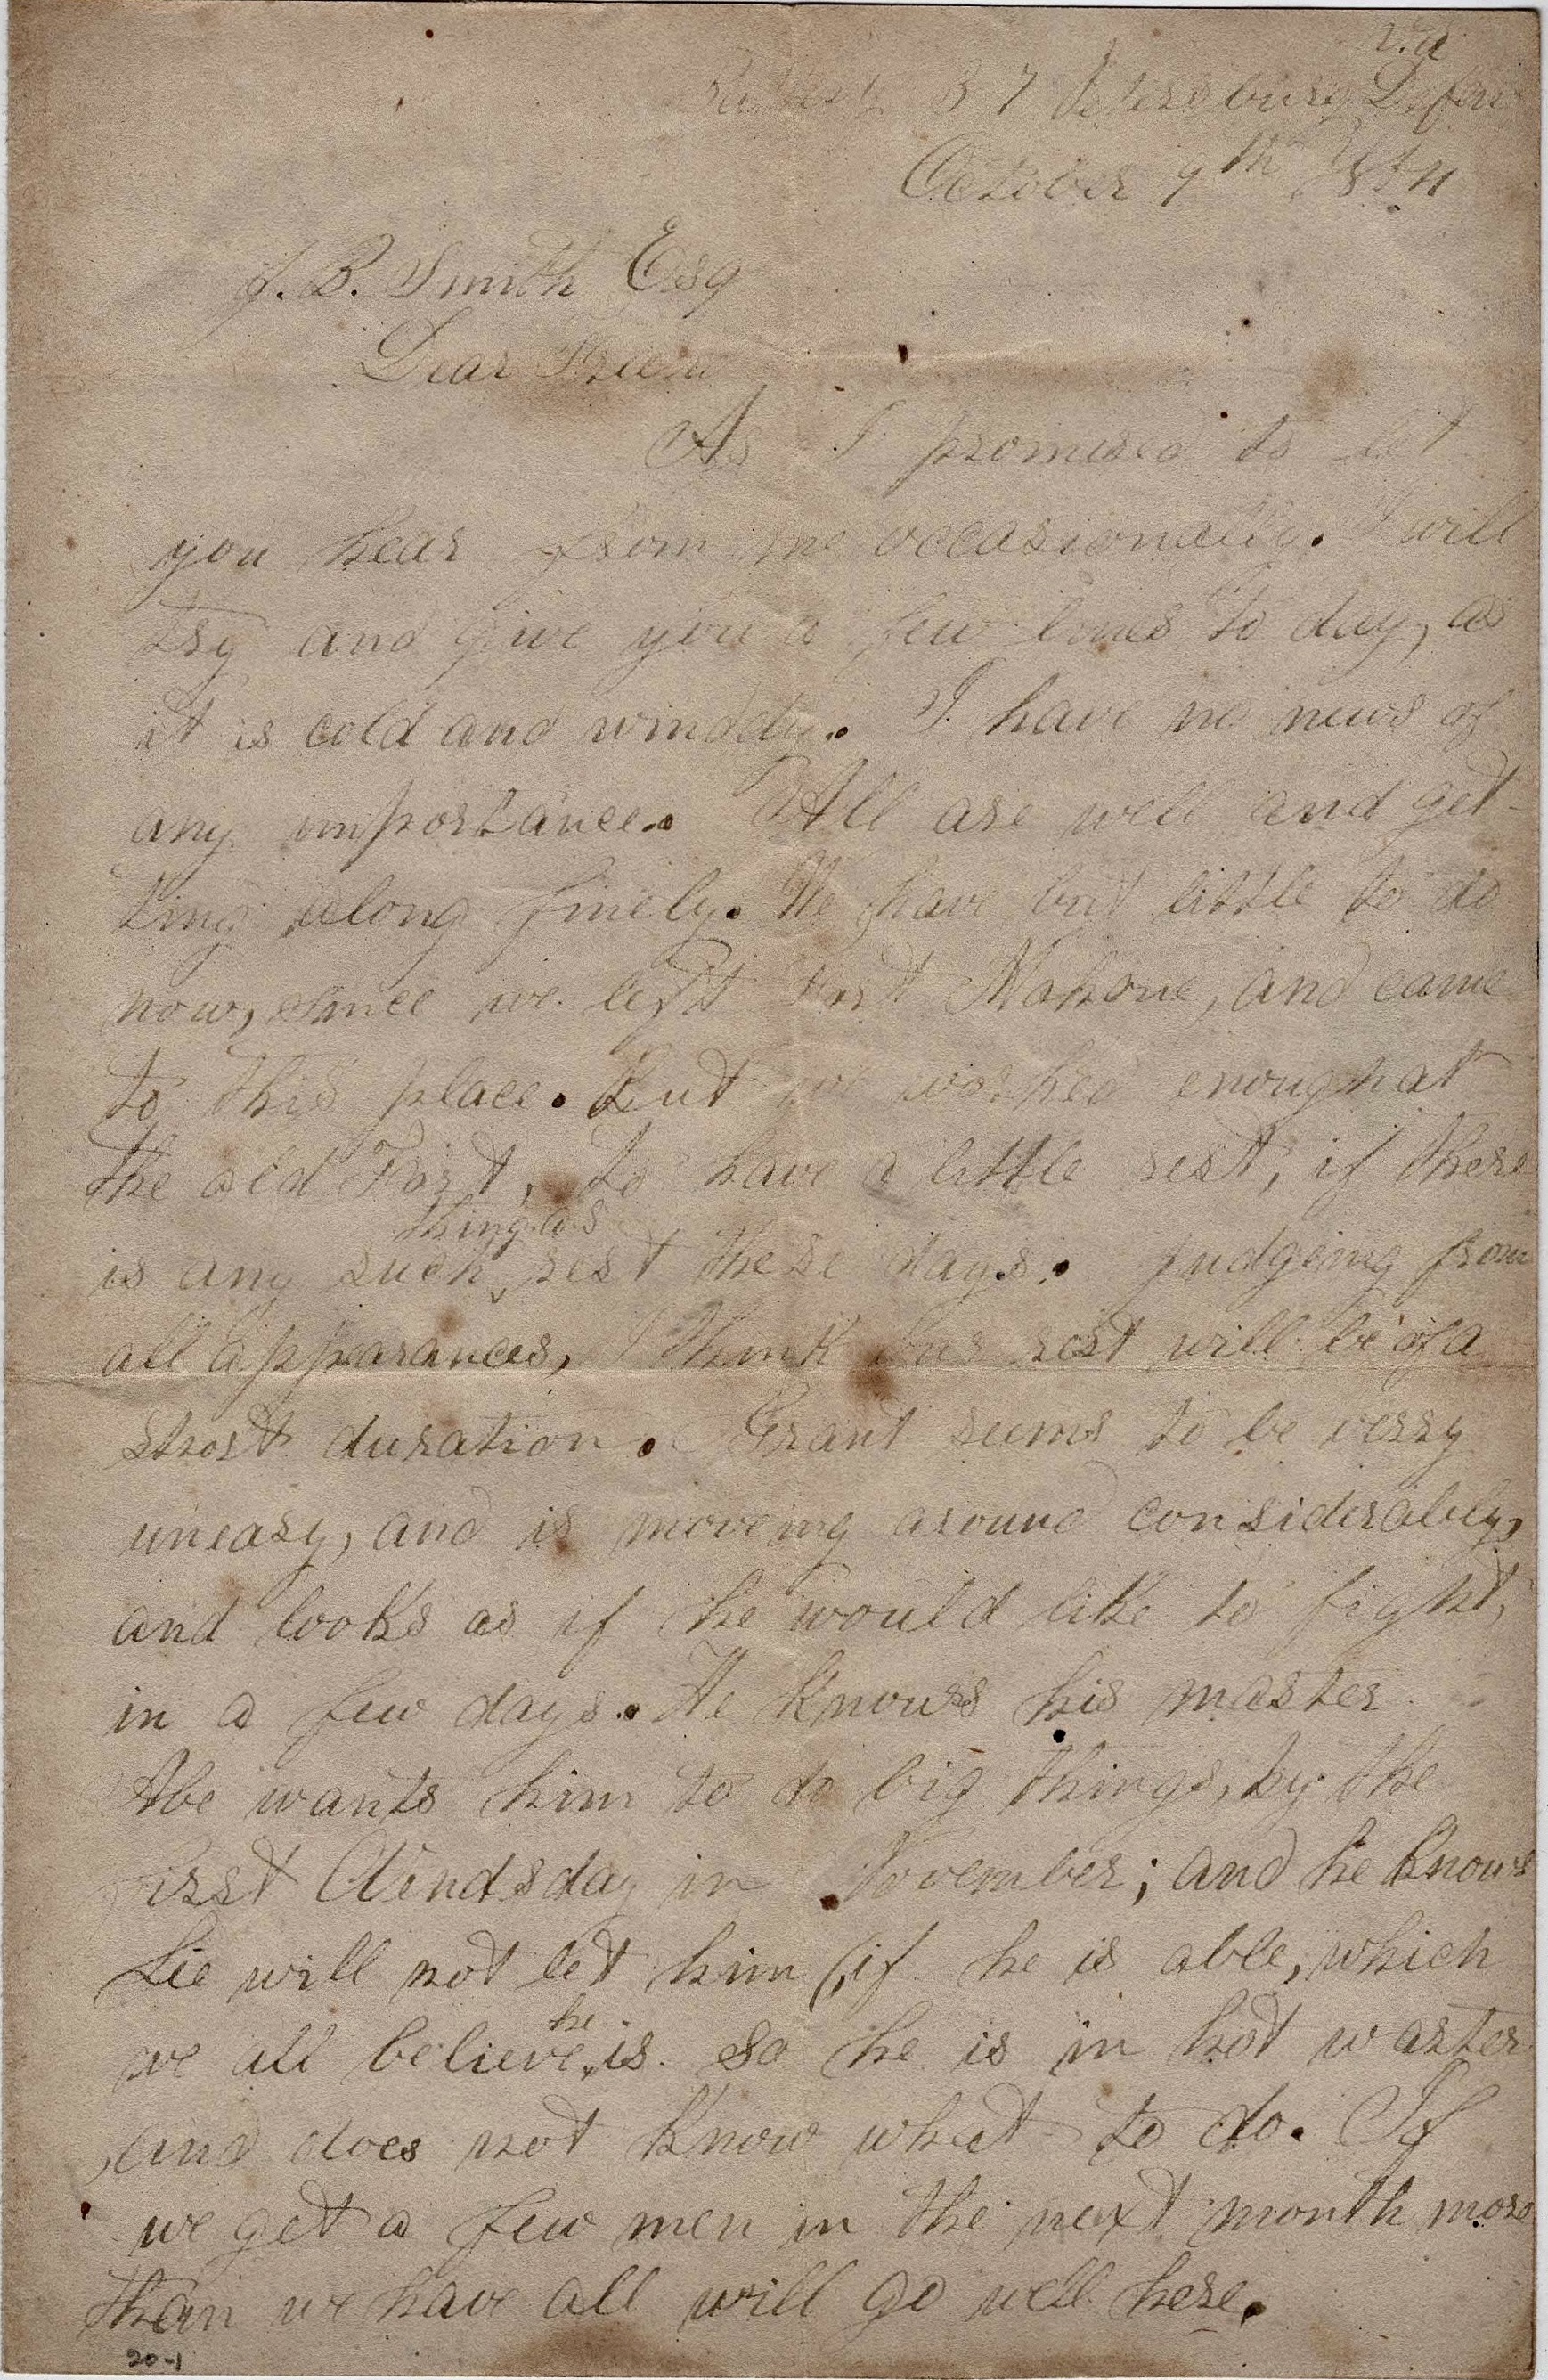 Va
37 Petersburg Defen
October 9th 1864
J. B. Smith Esq
Dear Friend
As I promised to let
you hear from me occasionally. I will
try and give you a few lines to day, as
it is cold and winddy. I have no news of
any importance. All are well and get-
ting along finely. We have but little to do
now, since we left Fort Mahone, and came
to this place. But we worked enough at
the old Fort, to have a little rest, if there
thing as
is any such rest these days. judgeing from
all appearances, I think our rest will be of a
short duration. Grant seems to be verry
uneasy, and is moveing around considerabley,
and looks as if he would like to fight,
in a few days. He knows his master
Abe wants him to do big things, by the
first Wendsday in November; and he knows
Lee will not let him (if he is able, which
he
we all believe is. So he is in hot waster
, and does not know what to do. If
we get a few men in the next month more
than we have all will go well here.
20-1